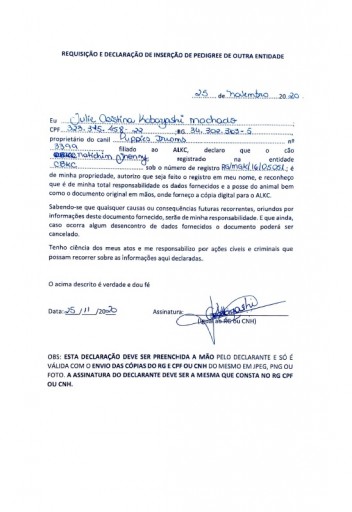 REQUISIÇÃO E DECLARAÇÃO DE INSERÇÃO DE PEDIGREE DE OUTRA ENTIDADE
25 de novembro 20 20
Eu Julie Cristina Kobayashi machado
CPF RG 34.302.303-5
proprietário do canil Puppies Dreams nº
3399 filiado ao ALKC, declaro que o cão
registrado na entidade
CBKC sob o número de registro é
de minha propriedade, autorizo que seja feito o registro em meu nome, e reconheço
que é de minha total responsabilidade os dados fornecidos e a posse do animal bem
como o documento original em mãos, onde forneço a cópia digital para o ALKC.
Sabendo-se que quaisquer causas ou consequências futuras recorrentes, oriundos por
informações deste documento fornecido, serão de minha responsabilidade. E que ainda,
caso ocorra algum desencontro de dados fornecidos o documento poderá ser
cancelado.
Tenho ciência dos meus atos e me responsabilizo por ações cíveis e criminais que
possam recorrer sobre as informações aqui declaradas.
O acima descrito é verdade e dou fé
Data: 25 / 11 / 2020 Assinatura:
RG OU CNH)
OBS: ESTA DECLARAÇÃO DEVE SER PREENCHIDA A MÃO PELO DECLARANTE E SÓ É
VÁLIDA COM O ENVIO DAS CÓPIAS DO RG E CPF OU CNH DO MESMO EM JPEG, PNG OU
FOTO. A ASSINATURA DO DECLARANTE DEVE SER A MESMA QUE CONSTA NO RG CPF
OU CNH.